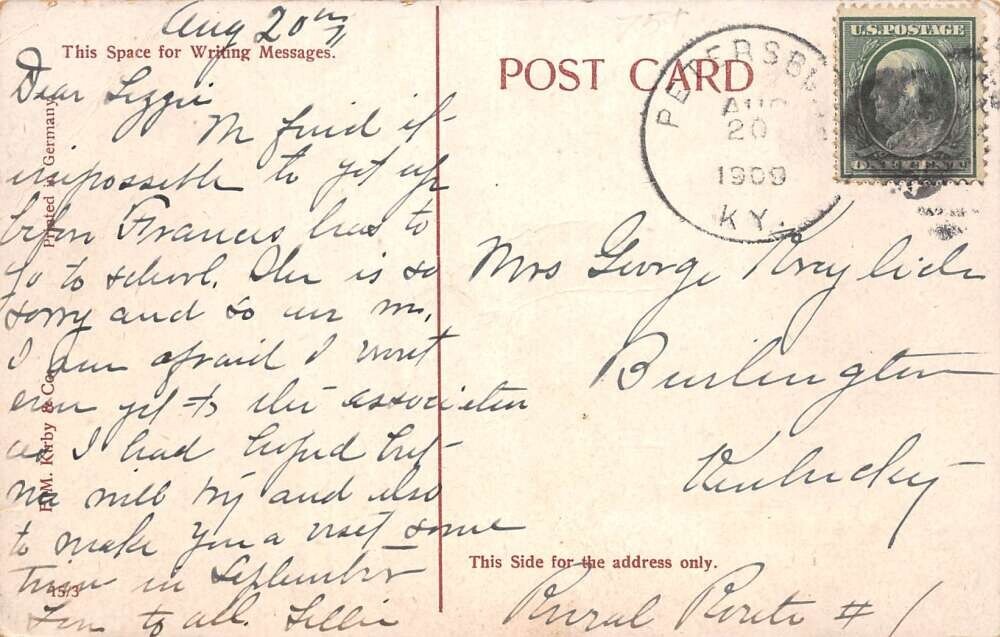 Aug 20th
This Space for Writing Messages.
Dear Lizzie
We find it
impossible to get up
before Frances has to
go to school. She is so
sorry and so are we.
I am afraid I wont
even get to the association
as I had hoped but
we will try and also
to make you a visit some
time in September
Love to all. Lillie
Printed in Germany
H. M. Kirby & Co.
15/3
POST CARD
PETERSBU
AUG
20
1909
KY.
U.S. POSTAGE
ONE CENT
Mrs George
Burlington
Kentucky
This Side for the address only.
Rural Route # 1